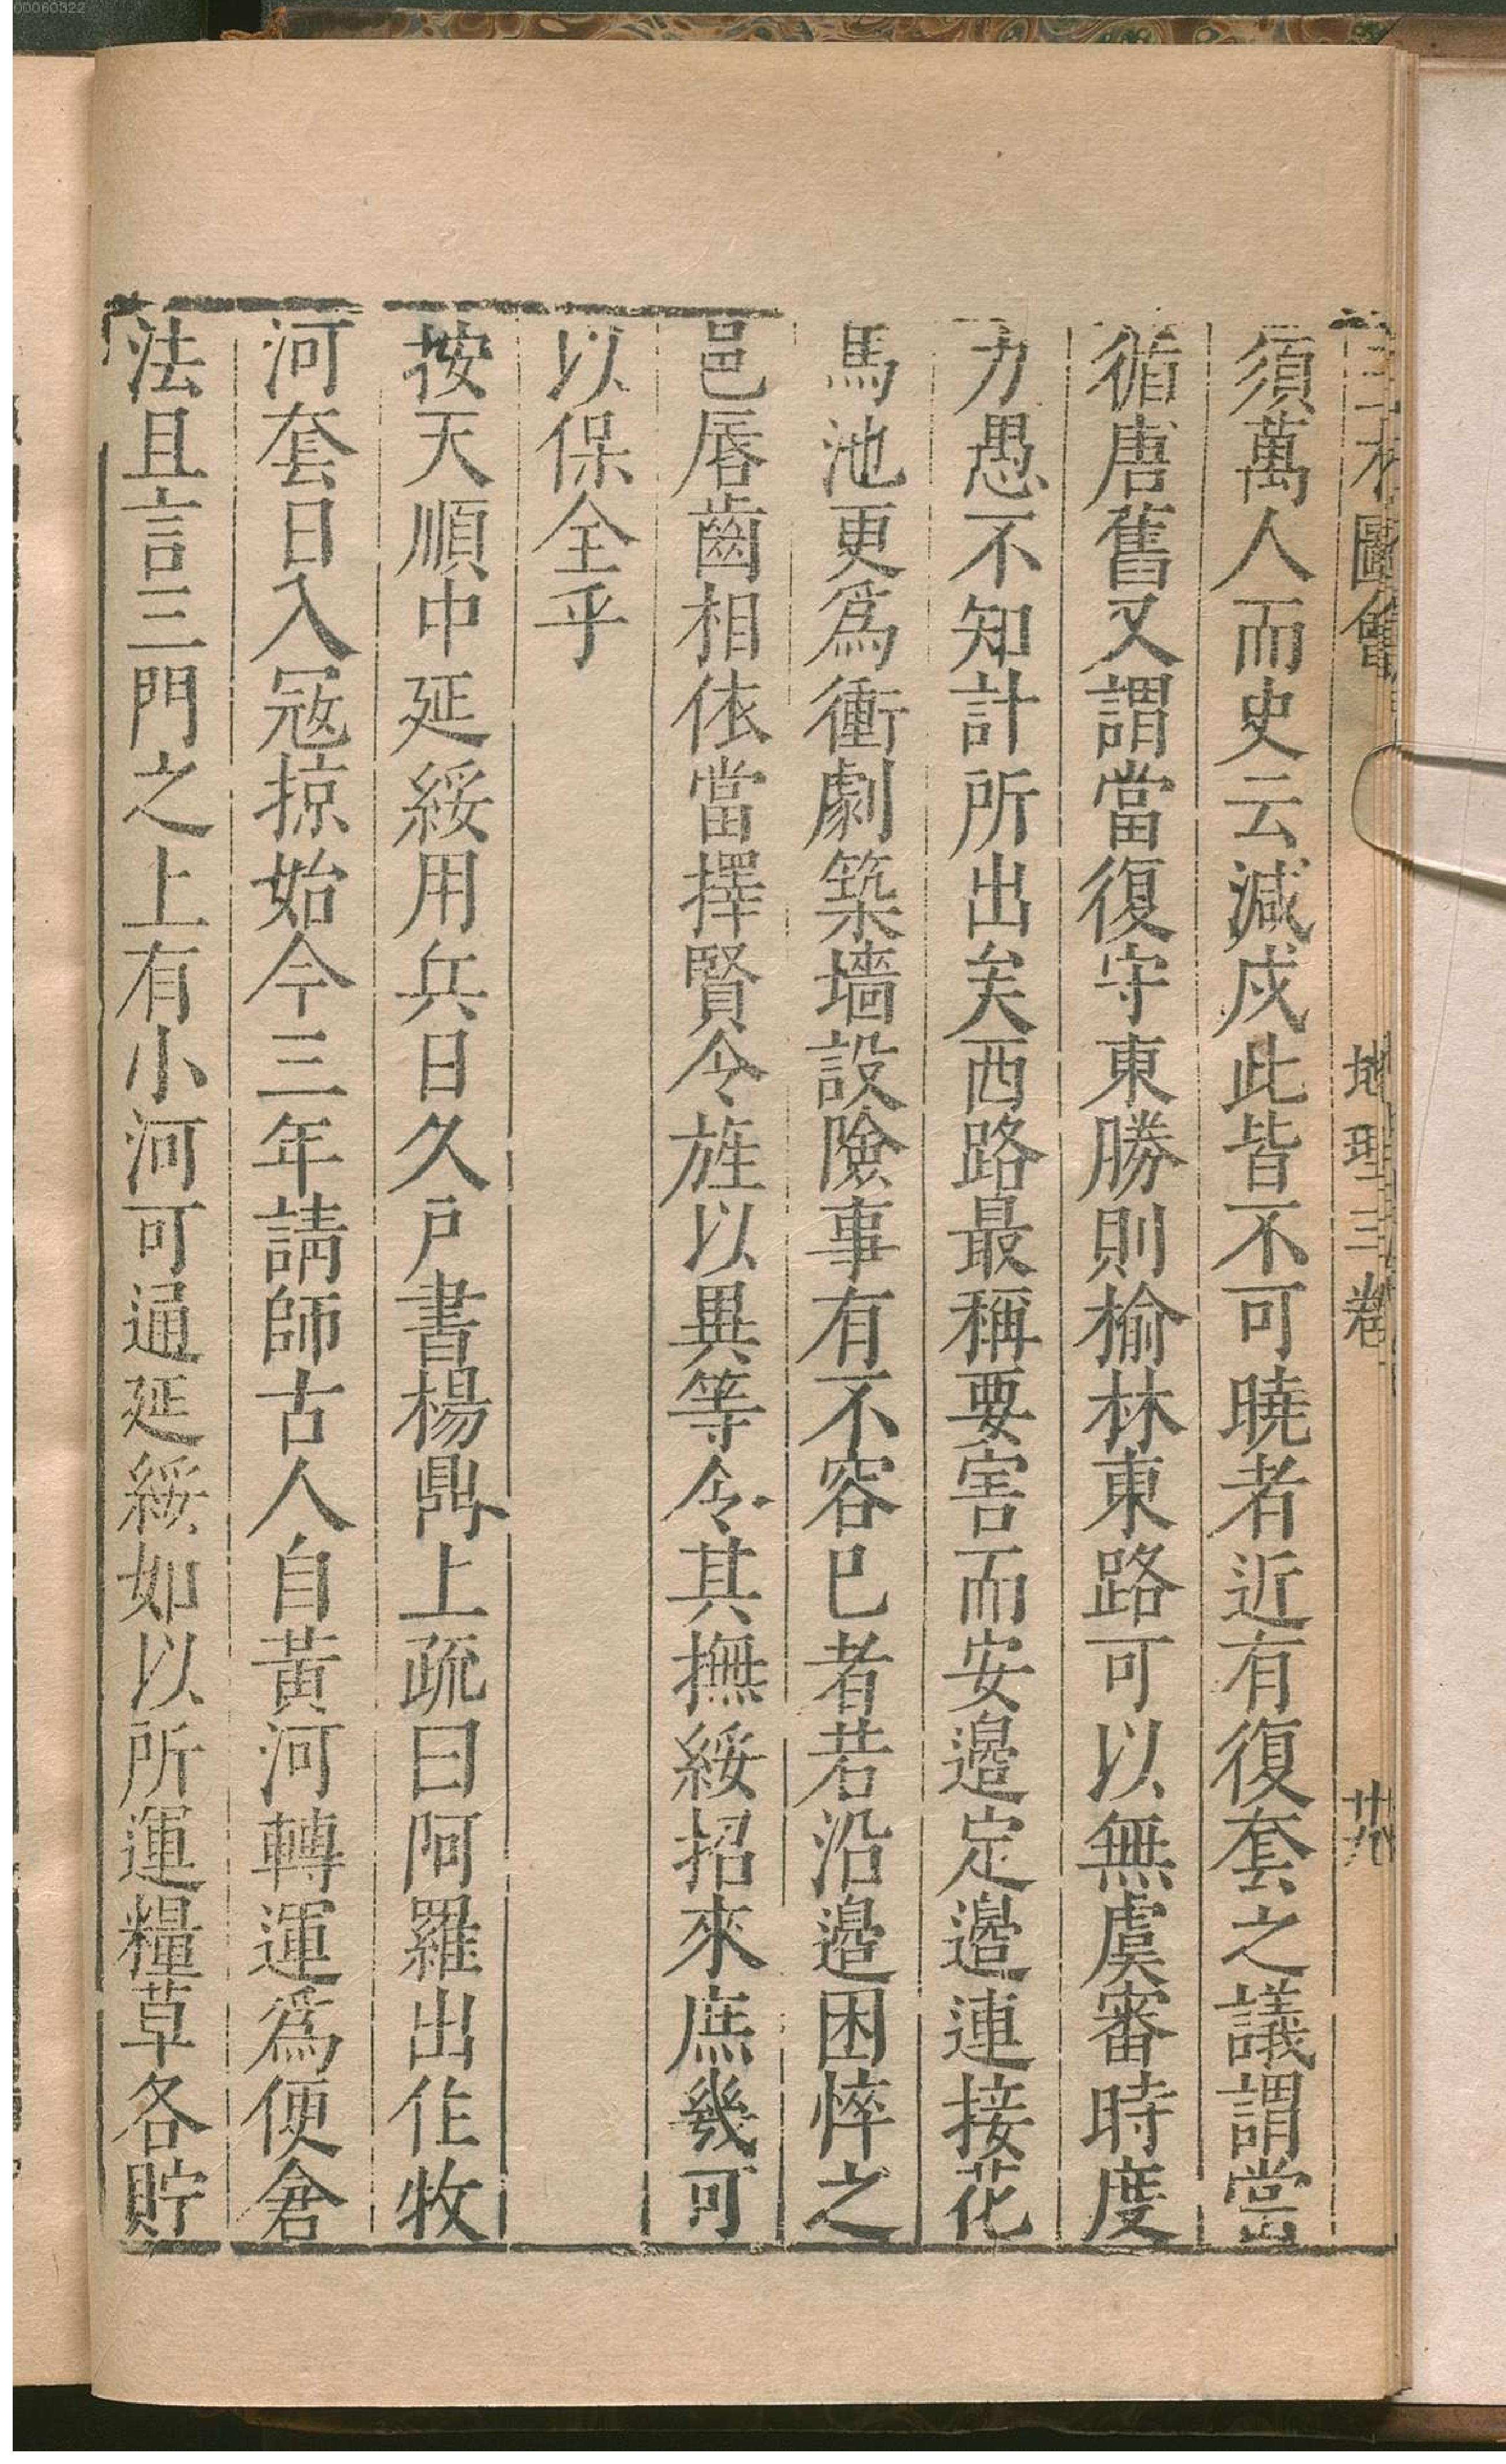 三才圖會 地理三卷 廿九
須萬人而史云減戍此皆不可曉者近有復套之議謂當
循唐舊又謂當復守東勝則榆林東路可以無虞審時度
力愚不知計所出矣西路最稱要害而安邉定邉連接花
馬池更爲衝劇築墻設險事有不容已者若沿邉困悴之
邑唇齒相依當擇賢令旌以異等令其撫綏招來庶幾可
以保全乎
按天順中延綏用兵日久戸書楊鼎上疏曰阿羅出住牧
河套日入冦掠始今三年請師古人自黃河轉運爲便倉
法且言三門之上有小河可通延綏如以所運糧草各貯
00060322